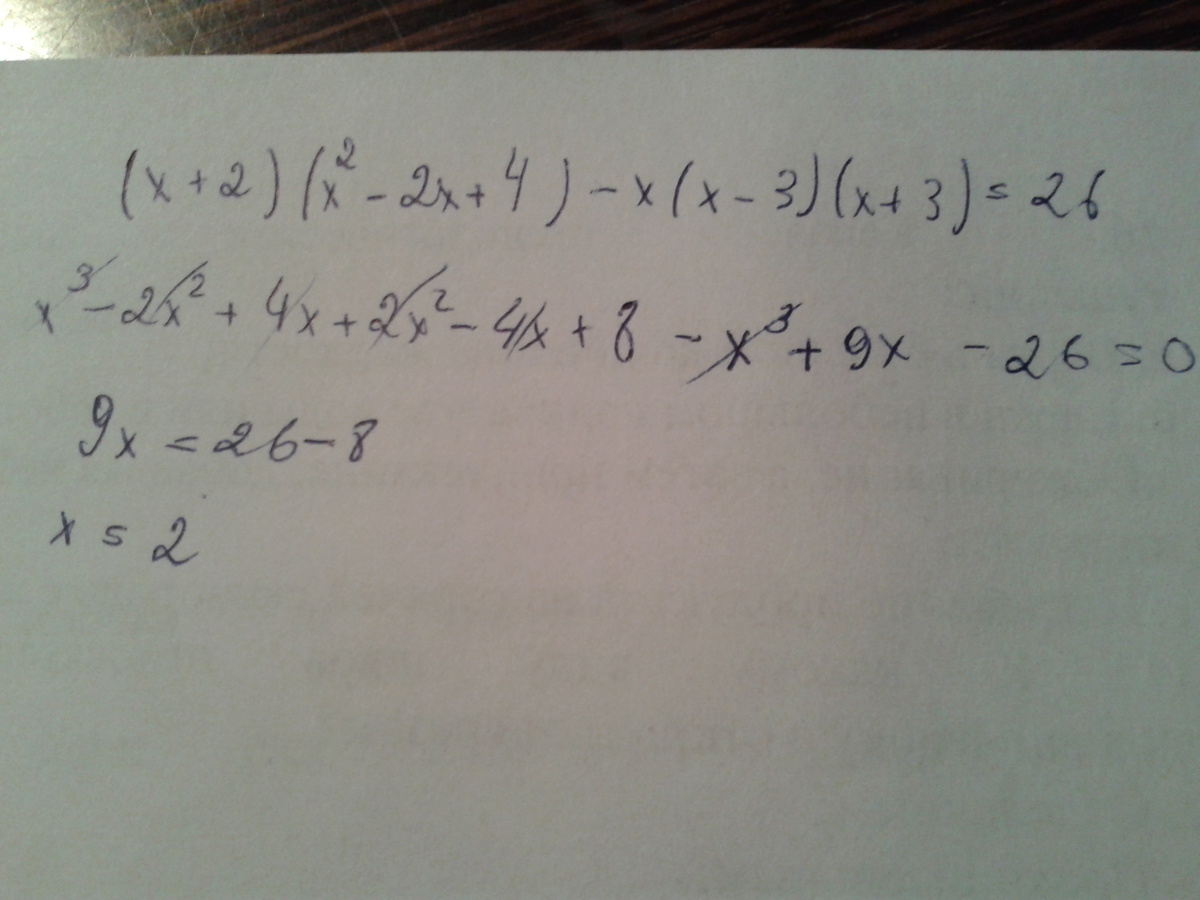 (x+2)(x²-2x+4)-x(x-3)(x+3)=26
x³-2x²+4x+2x²-4x+8-x³+9x-26=0
9x=26-8
x=2